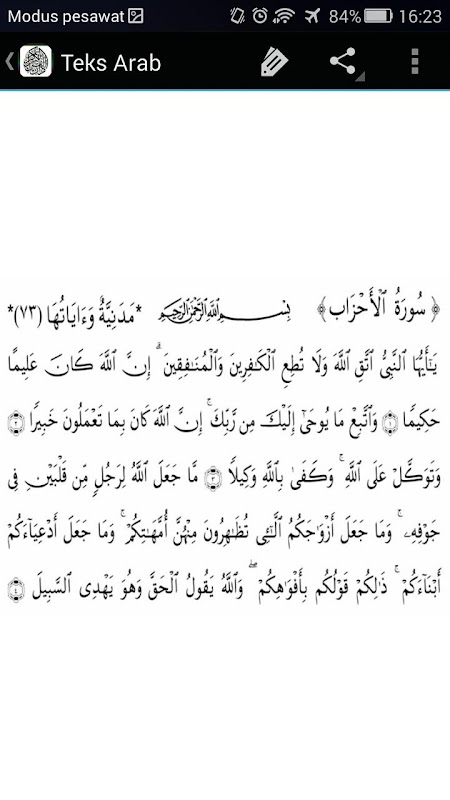 Modus pesawat 84% 16:23
Teks Arab
﴿ سُورَةُ ٱلْأَحْزَابِ ﴾ بِسْمِ ٱللَّهِ ٱلرَّحْمَٰنِ ٱلرَّحِيمِ *مَدَنِيَّةٌ وَءَايَاتُهَا (٧٣)*
يَـٰٓأَيُّهَا ٱلنَّبِىُّ ٱتَّقِ ٱللَّهَ وَلَا تُطِعِ ٱلْكَـٰفِرِينَ وَٱلْمُنَـٰفِقِينَ ۗ إِنَّ ٱللَّهَ كَانَ عَلِيمًا
حَكِيمًا ١ وَٱتَّبِعْ مَا يُوحَىٰٓ إِلَيْكَ مِن رَّبِّكَ ۚ إِنَّ ٱللَّهَ كَانَ بِمَا تَعْمَلُونَ خَبِيرًا ٢
وَتَوَكَّلْ عَلَى ٱللَّهِ ۚ وَكَفَىٰ بِٱللَّهِ وَكِيلًا ٣ مَّا جَعَلَ ٱللَّهُ لِرَجُلٍ مِّن قَلْبَيْنِ فِى
جَوْفِهِۦ ۚ وَمَا جَعَلَ أَزْوَٰجَكُمُ ٱلَّـٰٓـِٔى تُظَـٰهِرُونَ مِنْهُنَّ أُمَّهَـٰتِكُمْ ۚ وَمَا جَعَلَ أَدْعِيَآءَكُمْ
أَبْنَآءَكُمْ ۚ ذَٰلِكُمْ قَوْلُكُم بِأَفْوَٰهِكُمْ ۖ وَٱللَّهُ يَقُولُ ٱلْحَقَّ وَهُوَ يَهْدِى ٱلسَّبِيلَ ٤